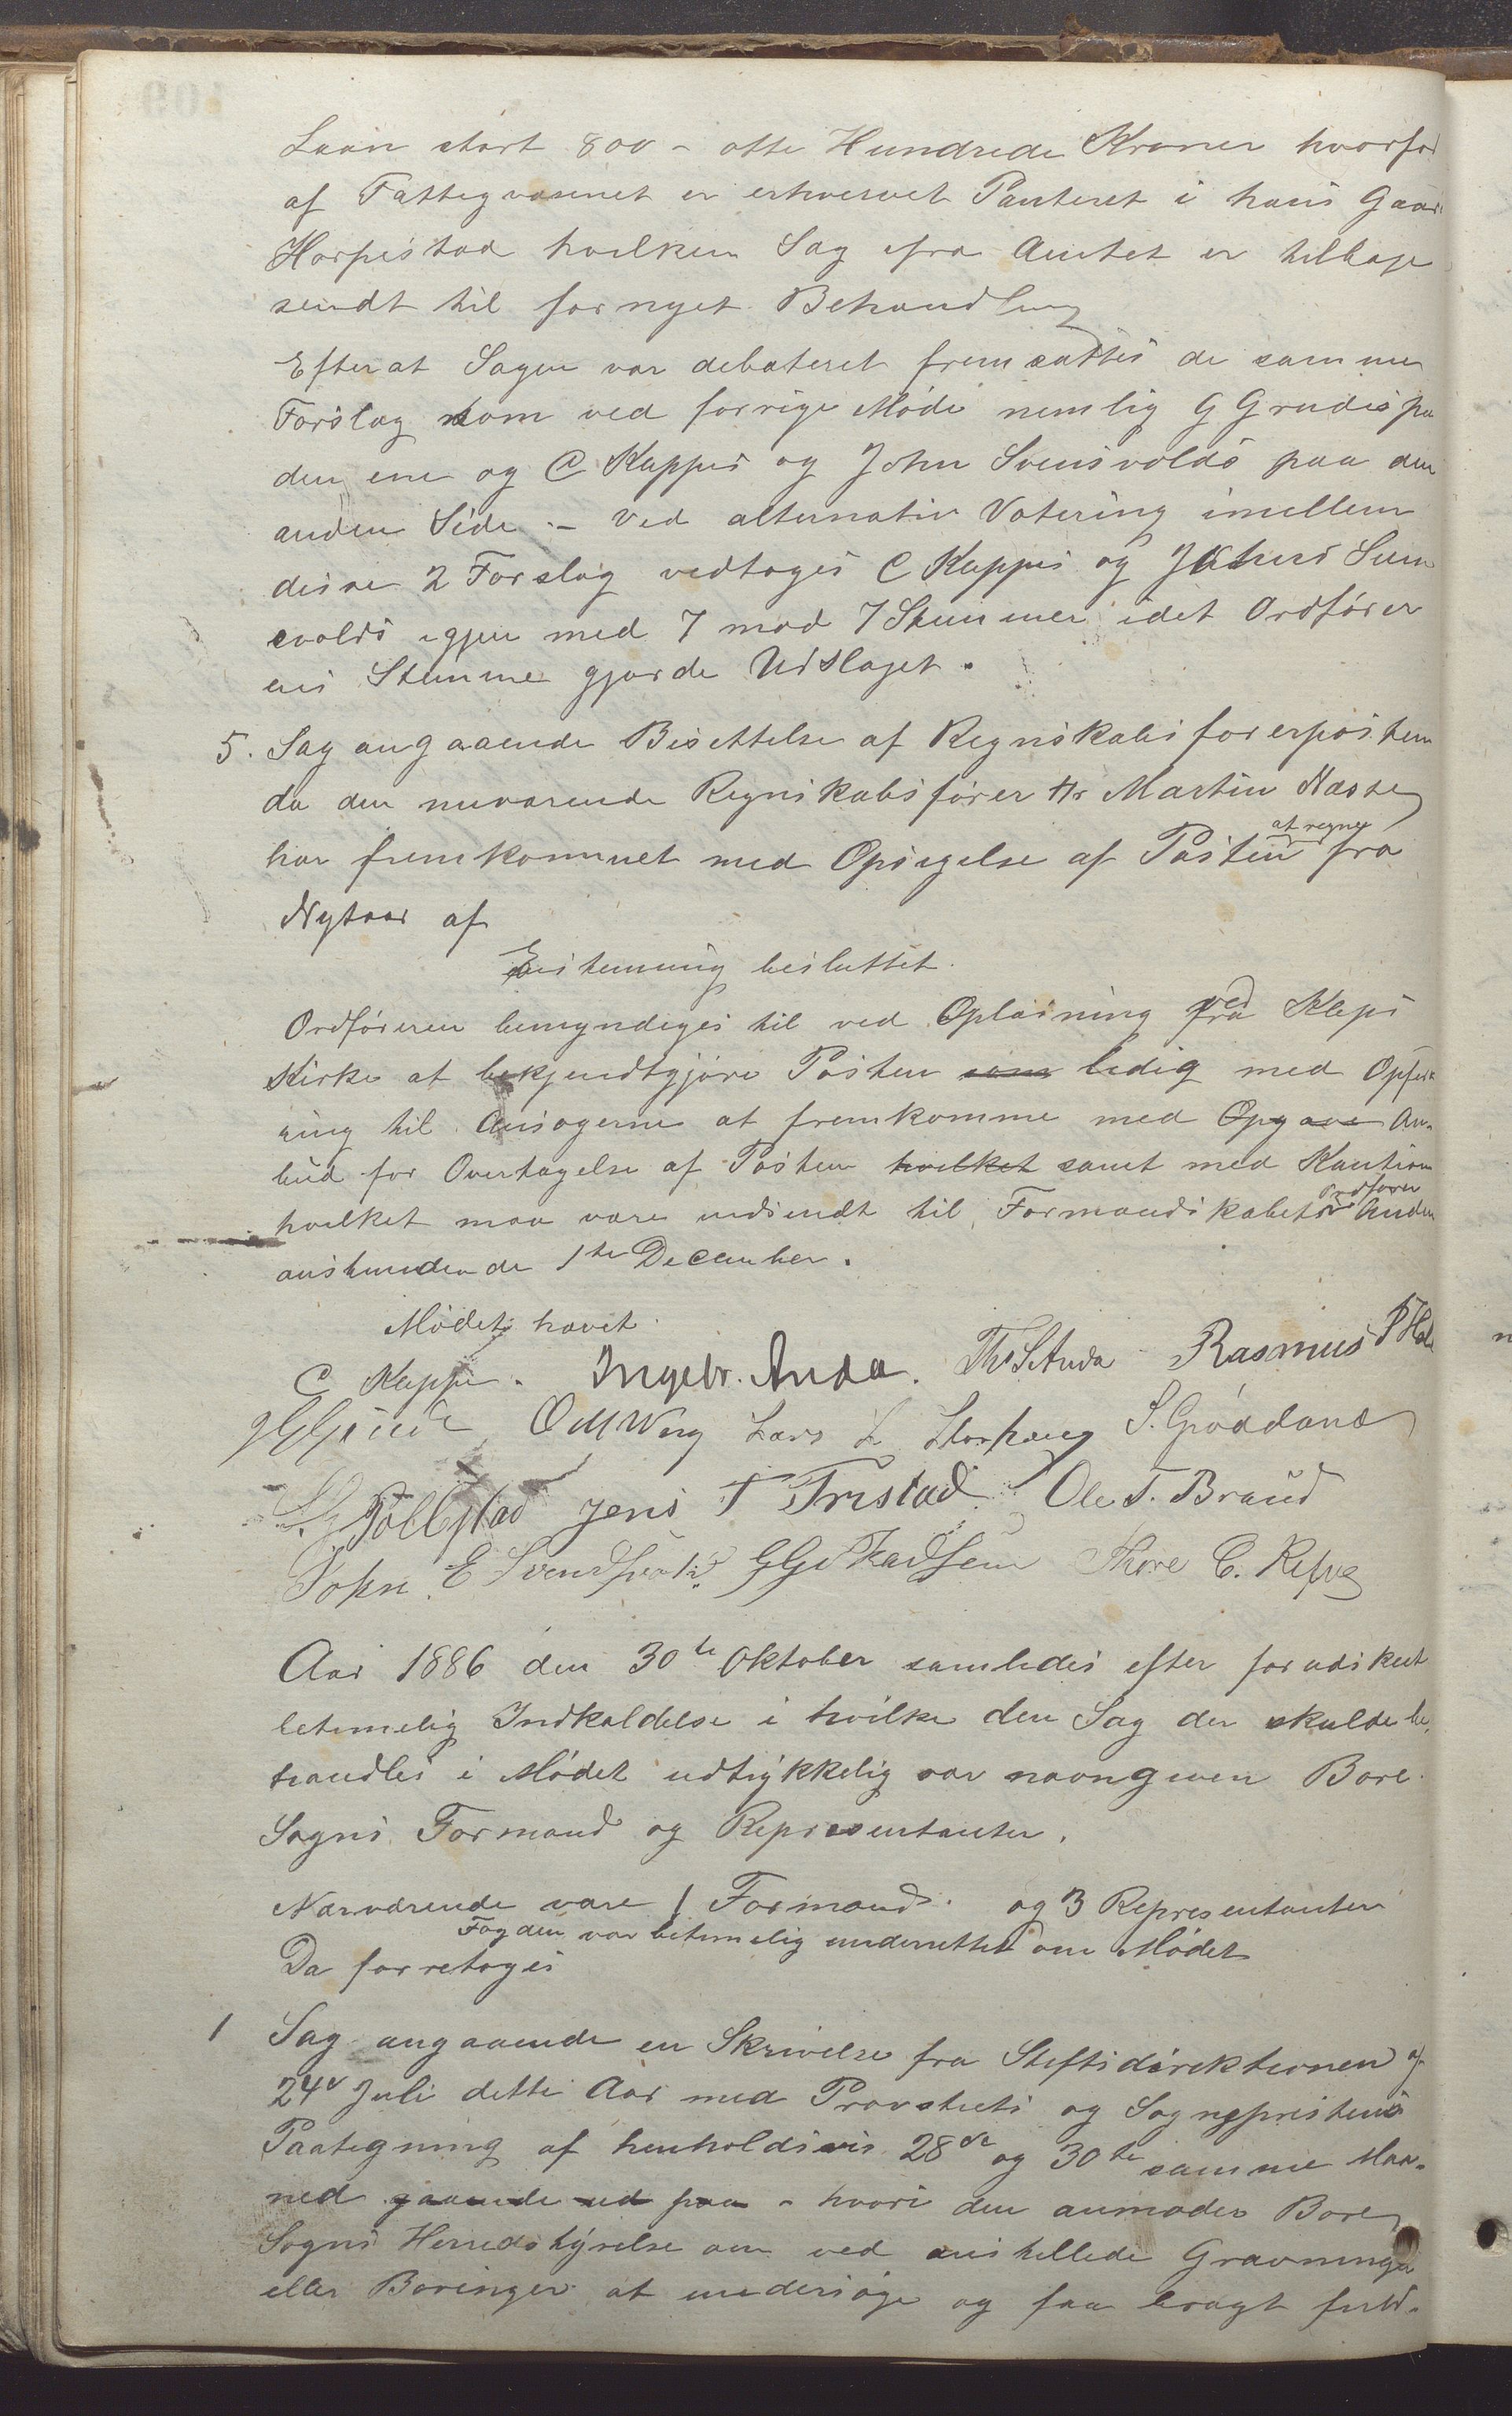 Laan stort 800 - otte Hundrede Kroner hvorfor
af Fattigvæsenet er erhvervet Panteret i hans Gaard
Horpestad hvilken Sag fra Amtet er tilbage
sendt til fornyet Behandling
Efterat Sagen var debateret fremsattes de samme
Forslag som ved forrige Møde nemlig G Grudes paa
den ene og C Kappes og John Svensvolds paa den
anden Side. - Ved alternativ Votering imellem
disse 2 Forslag vedtoges C Kappes og Johns Sven
svolds igjen med 7 mod 7 Stemmer idet Ordfører
ens Stemme gjorde Udslaget.
5. Sag angaaende Besettelse af Regnskabsførerposten
da den nuværende Regnskabsfører Hr Martin Næsse
har fremkommet med Opsigelse af Posten at regne fra
Nytaar af
Enstemmig besluttet.
Ordføreren bemyndiges til ved Oplæsning ved Kleps
Kirke at bekjendtgjøre Posten som ledig med Opford
ring til Ansøgerne at fremkomme med Opgave An-
bud for Overtagelse af Posten hvilket samt med Kaution
hvilket maa være indsendt til Formandskabets Ordfører inden
anstundende 1te December.
Mødet hævet.
C Kappe. Ingebr. Anda. Ths S Anda Rasmus P Hole
O M Werg Lars L Storhoug S. Grødland
Pollestad Jens T Friestad Ole T. Braud
John E Svendsvold G Gudmestad Thore C. Refve
Aar 1886 den 30te Oktober samledes efter forudskeet
betimelig Indkaldelse i hvilke den Sag der skulde be-
handles i Mødet udtrykkelig var navngiven Bore
Sogns Formænd og Repræsentanter.
Nærværende vare 1 Formand. og 3 Repræsentanter
Fogden var betimelig underrettet om Mødet
Da forretoges
1 Sag angaaende en Skrivelse fra Stiftsdirektionen af
24de Juli dette Aar med Provstiets og Sognepræstens
Paategning af henholdsvis 28de og 30te samme Maa-
ned gaaende ud paa - hvori den anmoder Bore
Sogns Herredstyrelse om ved anstillede Gravninger
eller Boringer at undersøge og faa bragt fuld-